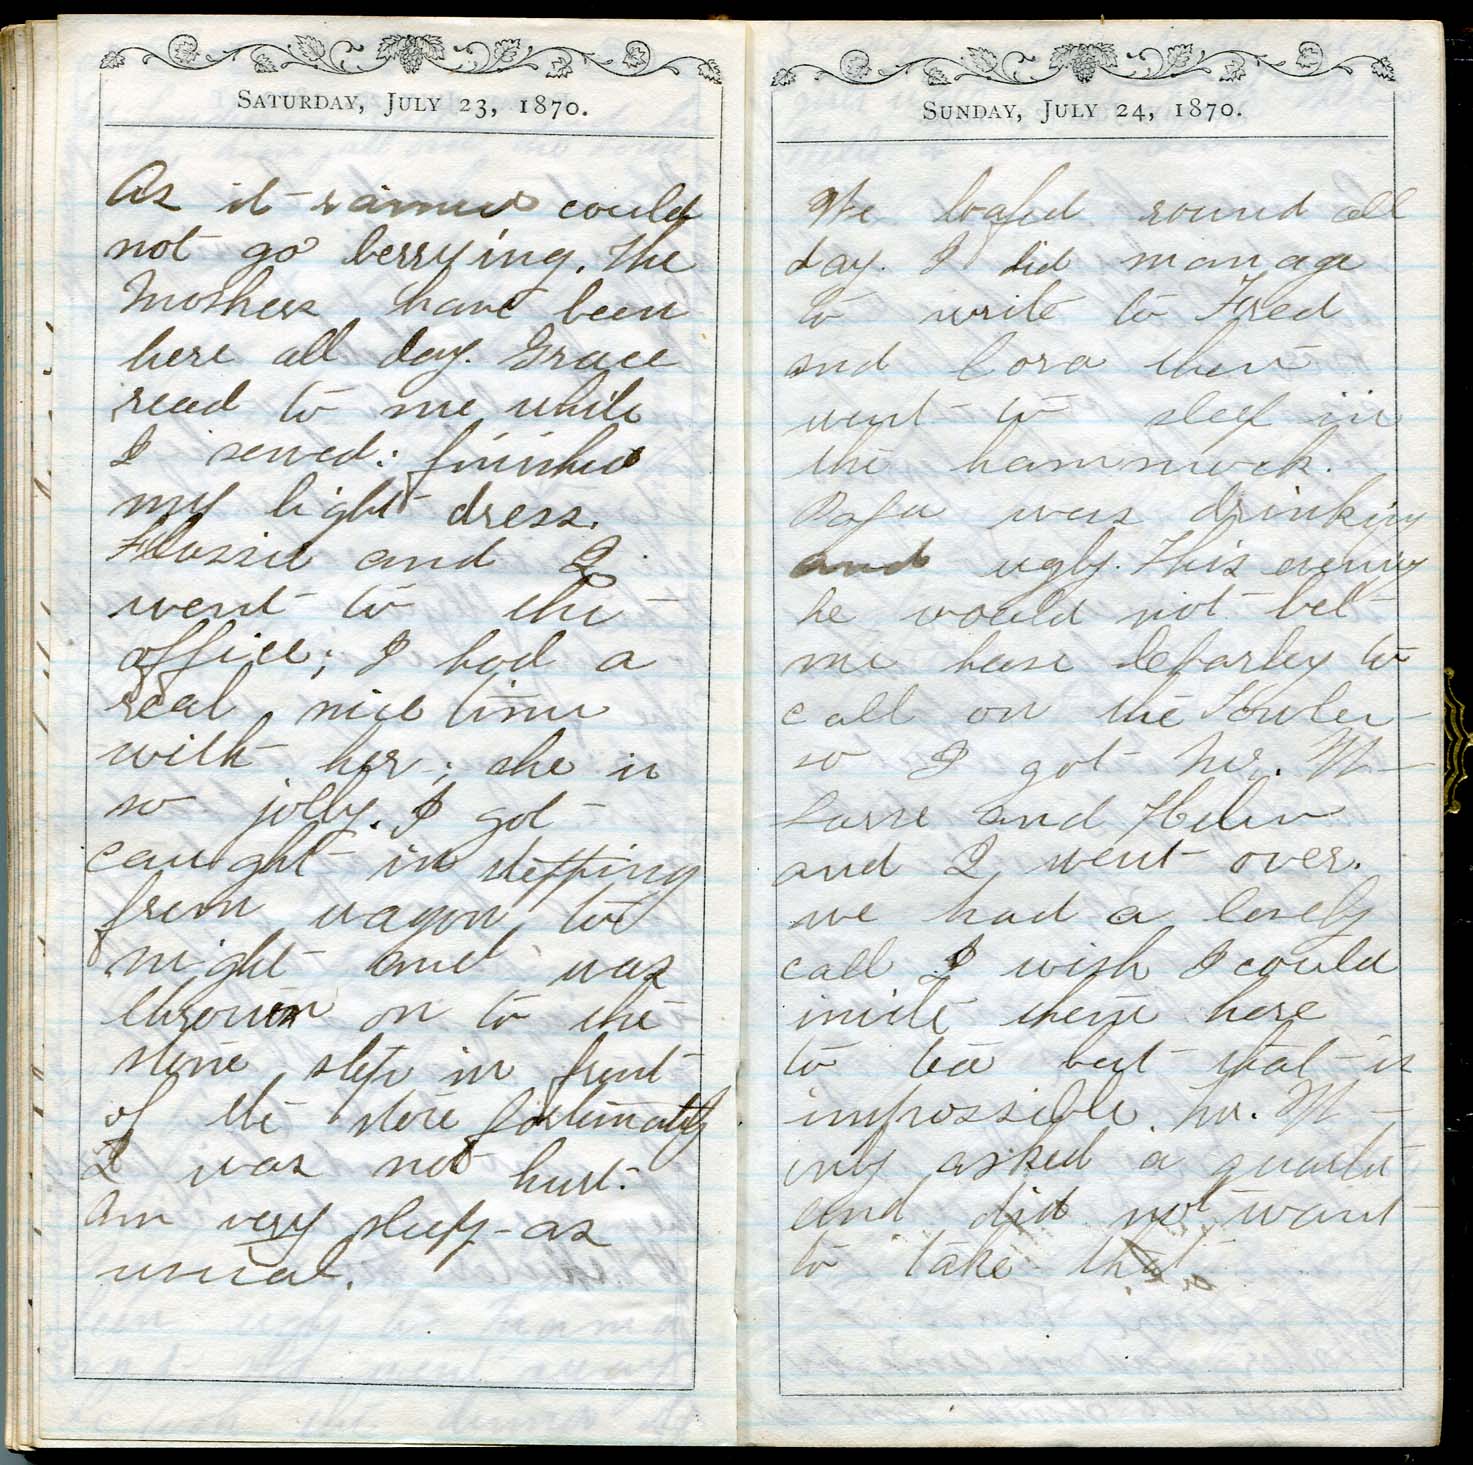 SATURDAY, JULY 23, 1870.
As it rained could
not go berrying. The
Mothers have been
here all day. Grace
read to me while
I sewed: finished
my light dress.
Flossie and I
went to the
office; I had a
real nice time
with her; she is
so jolly. I got
caught in stepping
from wagon to
night and was
thrown on to the
stone step in front
of the store fortunately
I was not hurt.
Am very sleepy - as
usual.
SUNDAY, JULY 24, 1870.
We loafed round all
day. I did manage
to write to Fred
and Cora then
went to sleep in
the hammock.
Papa was drinking
and ugly. This evening
he would not let
me have to
call on the
so I got Mr. M—
horse and Helen
and I went over.
we had a lovely
call I wish I could
invite them here
to tea but that is
impossible. Mr. M—
only asked a quarter
and did not want
to take that.